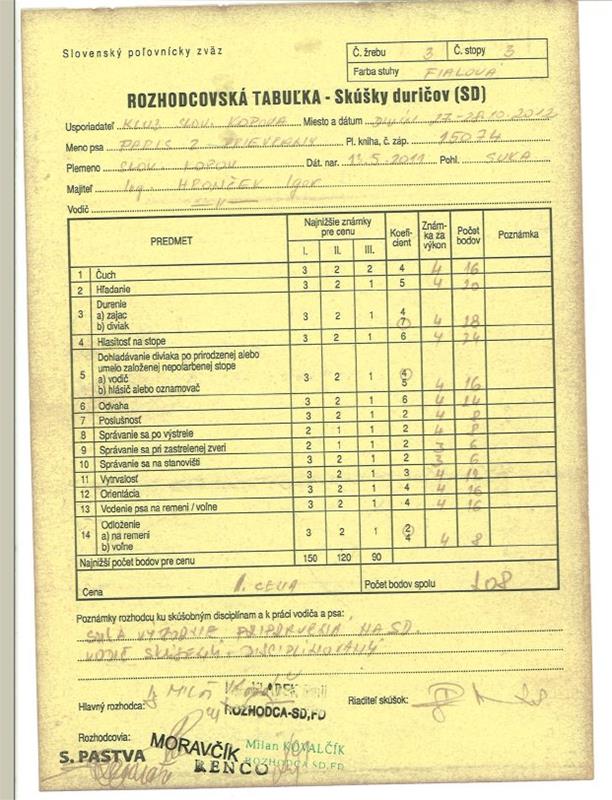 Slovenský poľovnícky zväz
Č. žrebu 3 Č. stopy 3
Farba stuhy FIALOVÁ
ROZHODCOVSKÁ TABUĽKA - Skúšky duričov (SD)
Usporiadateľ KLUB SLOV. KOPOVA Miesto a dátum 27-28.10.2012
Meno psa PARIS Z PRIEVRANY Pl. kniha, č. záp. 15074
Plemeno SLOV. KOPOV Dát. nar. 13.5.2011 Pohl. SUKA
Majiteľ Ing. HRONČEK Igor
Vodič -"-
PREDMET Najnižšie známky pre cenu Koefi-cient Znám-ka za výkon Počet bodov Poznámka
I. II. III.
1 Čuch 3 2 2 4 4 16
2 Hľadanie 3 2 1 5 4 20
3 Durenie
a) zajac 4
b) diviak 3 2 1 7 4 28
4 Hlasitosť na stope 3 2 1 6 4 24
5 Dohladávanie diviaka po prirodzenej alebo
umelo založenej nepofarbenej stope
a) vodič 3 2 1 4
b) hlásič alebo oznamovač 5 4 16
6 Odvaha 3 2 1 6 4 24
7 Poslušnosť 3 2 1 2 4 8
8 Správanie sa po výstrele 2 1 1 2 4 8
9 Správanie sa pri zastrelenej zveri 2 1 1 2 3 6
10 Správanie sa na stanovišti 3 2 1 2 3 6
11 Vytrvalosť 3 2 1 3 4 12
12 Orientácia 3 2 1 4 4 16
13 Vodenie psa na remeni / voľne 3 2 1 4 4 16
14 Odloženie
a) na remeni 3 2 1 2
b) voľne 4 4 8
Najnižší počet bodov pre cenu 150 120 90
Cena I. CENA Počet bodov spolu 208
Poznámky rozhodcu ku skúšobným disciplínam a k práci vodiča a psa:
BOLA VÝBORNE PRIPRAVENÁ NA SD.
VODIČ SKÚSENÝ - DISCIPLINOVANÝ
Hlavný rozhodca: MILOŠ ROZHODCA-SD,FD Riaditeľ skúšok:
Rozhodcovia:
S. PASTVA MORAVČÍK RENCO Milan KOVALČÍK
ROZHODCA SD,FD